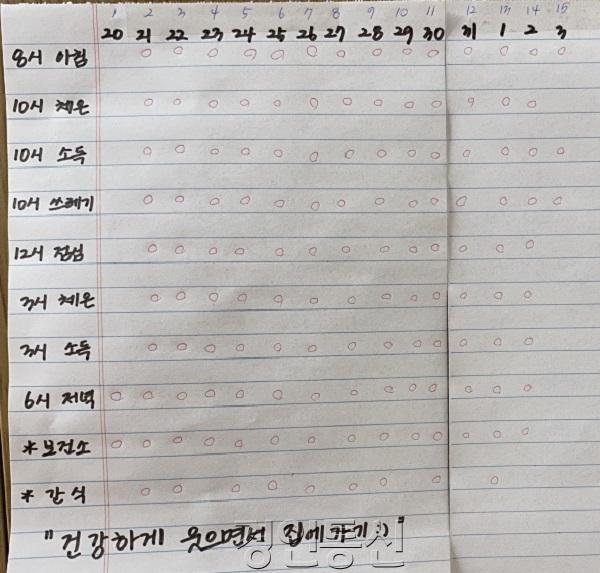 1 2 3 4 5 6 7 8 9 10 11 12 13 14 15
20 21 22 23 24 25 26 27 28 29 30 31 1 2 3
8시 아침
10시 체온
10시 소독
10시 쓰레기
12시 점심
3시 체온
3시 소독
6시 저녁
* 보건소
* 간식
"건강하게 웃으면서 집에가기:)"
경인통신